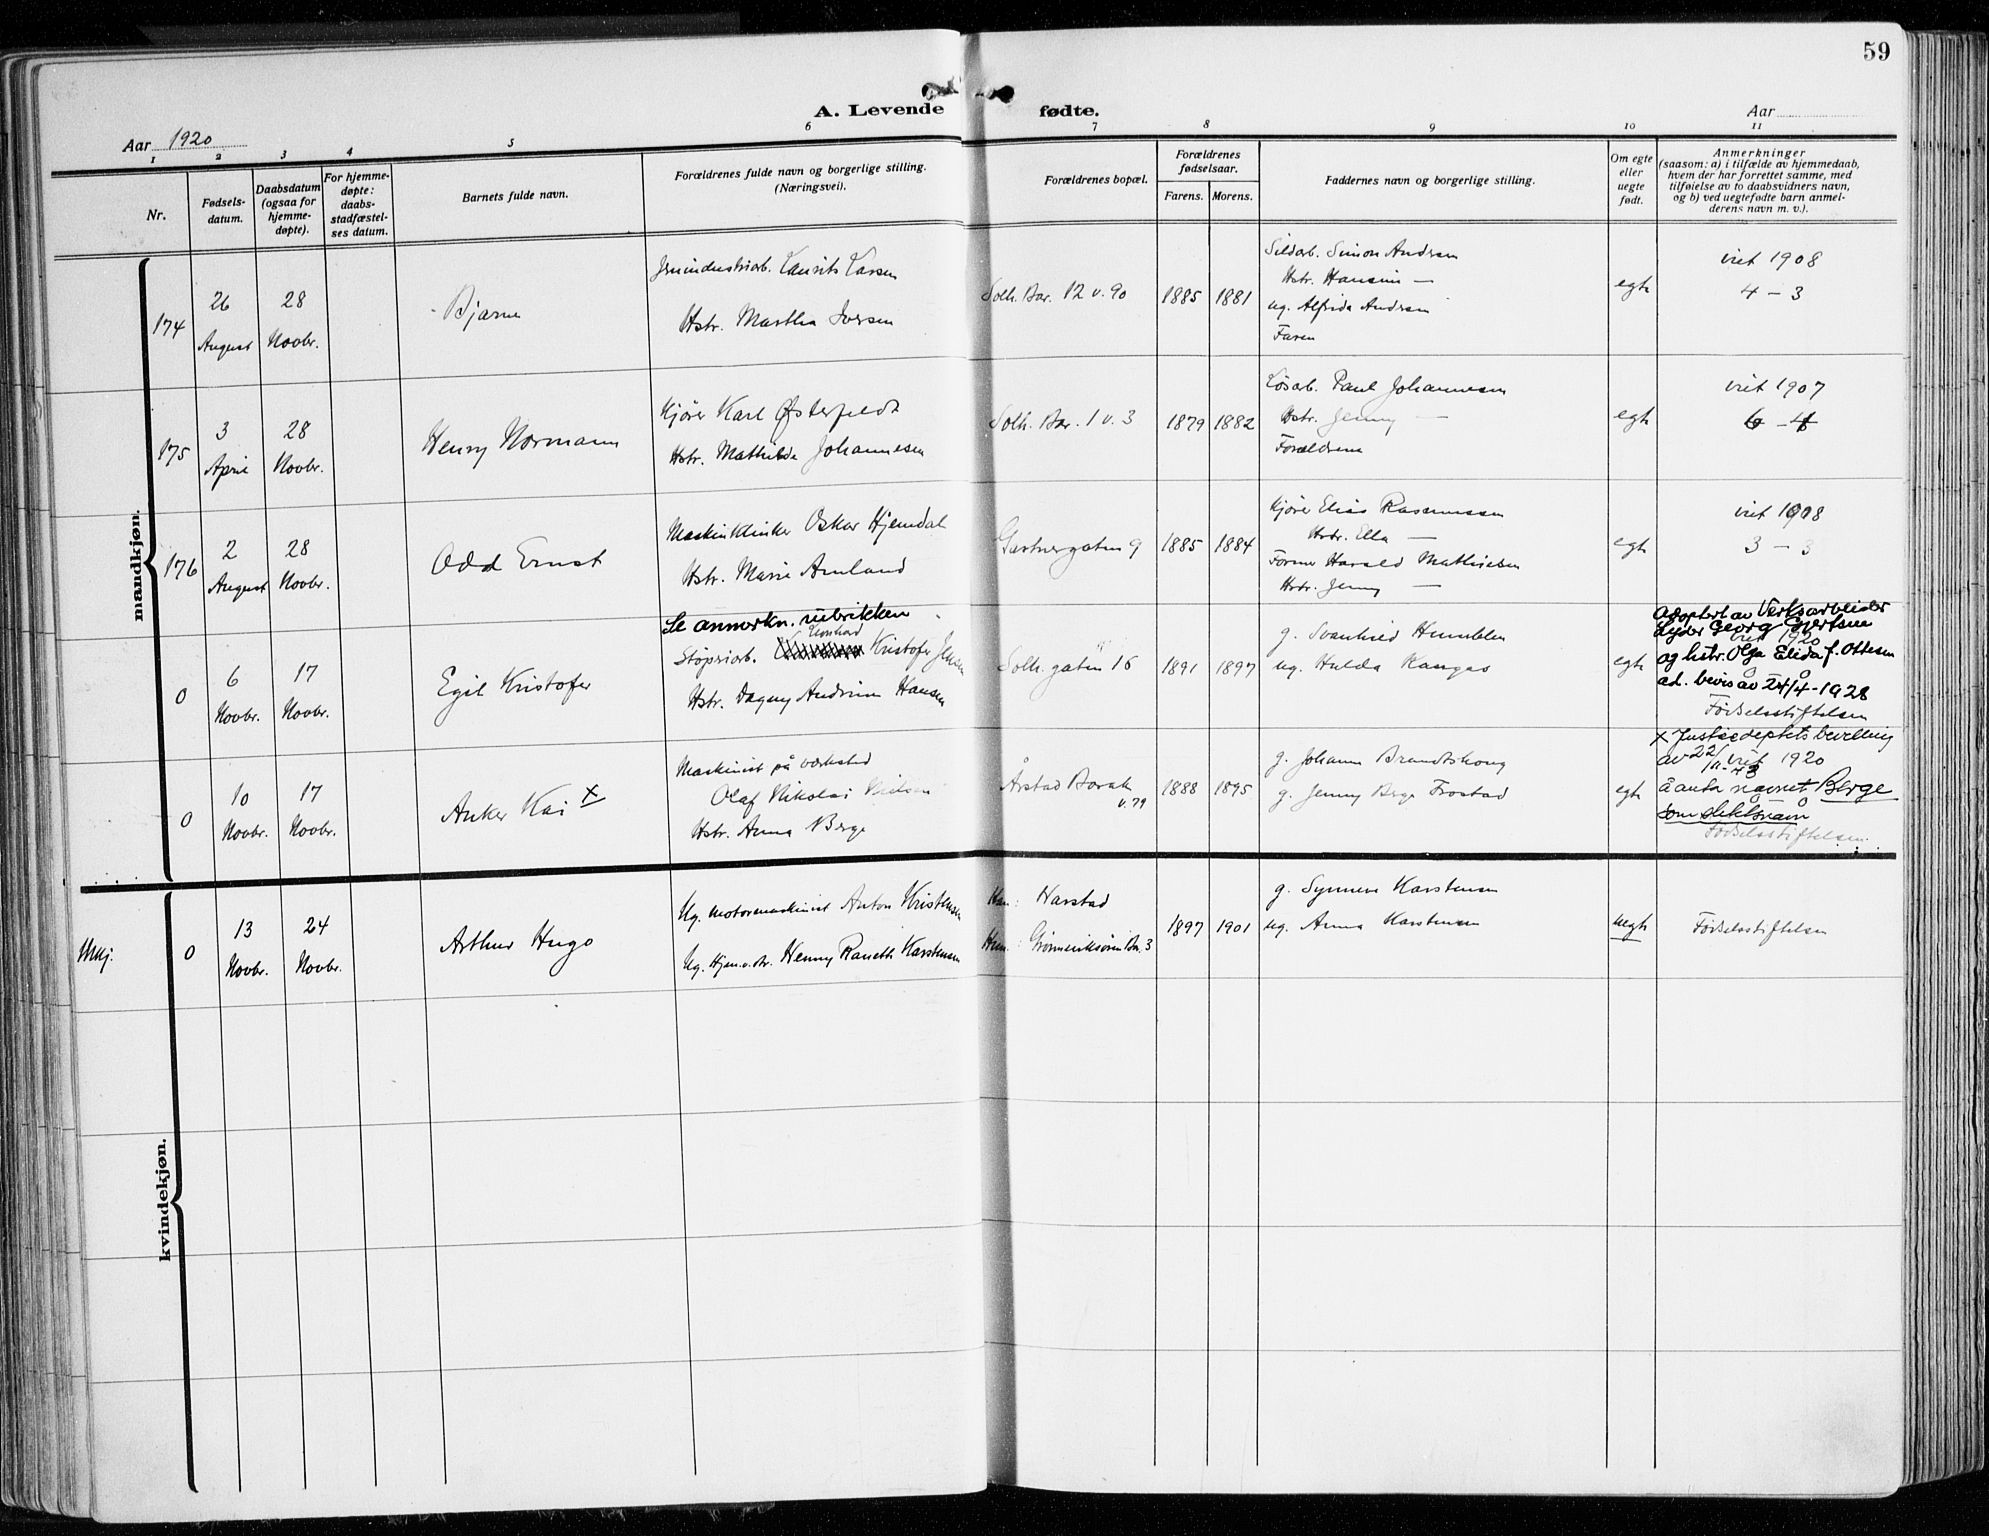 59
A. Levende fødte.
Aar 1920
Aar
1 2 3 4 5 6 7 8 9 10 11
Nr.
Fødsels-
datum.
Daabsdatum
(ogsaa for
hjemme-
døpte).
For hjemme-
døpte:
daabs-
stadfæstel-
ses datum.
Barnets fulde navn.
Forældrenes fulde navn og borgerlige stilling.
(Næringsvei).
Forældrenes bopæl.
Forældrenes
fødselsaar.
Farens. Morens.
Faddernes navn og borgerlige stilling.
Om egte
eller
uegte
født.
Anmerkninger
(saasom: a) i tilfælde av hjemmedaab,
hvem der har forrettet samme, med
tilføielse av to daabsvidners navn,
og b) ved uegtefødte barn anmel-
derens navn m. v.).
mandkjøn.
174
26
August
28
Novbr.
Bjarne
Laurits Larsen
Hstr. Martha Iversen
Solh. Bar. 12 v. 90
1885
1881
Sildarb. Simon Andersen
Hstr. Hansine —
ug. Alfrida Andersen
Faren
egte
viet 1908
4 – 3
175
3
April
28
Novbr.
Henry Normann
Kjører Karl Østerfeldt
Hstr. Mathilde Johannesen
Solh. Bar. 1 v. 3
1879
1882
Løsarb. Paul Johannesen
Hstr. Jenny —
Forældrene
egte
viet 1907
6 – 4
176
2
August
28
Novbr.
Odd Ernst
Maskinklinker Oskar Hjemdal
Hstr. Marie Amland
Gartnergaten 9
1885
1884
Kjører Elias Rasmussen
Hstr. Ella —
Former Harald Mathiesen
Hstr. Jenny —
egte
viet 1908
3 – 3
0
6
Novbr.
17
Novbr.
Egil Kristofer
Se anmerkn. rubrikken
Støperiarb. Leonhard Kristofer Jensen
Hstr. Dagny Andrine Hansen
Solh. gaten 16
1891
1897
g. Svanhild Humblen
ug. Hulda Kangas
egte
Adoptert av Verksarbeider
Lyder Georg Gjertsen
viet 1920
og hstr. Olga Elida f. Ottesen
ad. bevis av 24/4-1928
Fødselsstiftelsen
0
10
Novbr.
17
Novbr.
Anker Kai x
Maskinist på verksted
Olaf Nikolai Nielsen
Hstr. Anna Berge
Årstad Barak
v. 79
1888
1895
g. Johanna Brandtskong
g. Jenny Berge Frostad
egte
x Justisdeptets bevilling
av 22/11-43
viet 1920
å anta navnet Berge
som slektsnavn
Fødselsstiftelsen
kvindekjøn.
Mkj.
0
13
Novbr.
24
Novbr.
Arthur Hugo
Ug. motormaskinist Anton Kristensen
Ug. Hjem.v.str. Henny Ranette Karstensen
Han: Harstad
Hun: Grønneviksøren Bar. 3
1897
1901
g. Synneve Karstensen
ug. Anna Karstensen
uegte
Fødselsstiftelsen